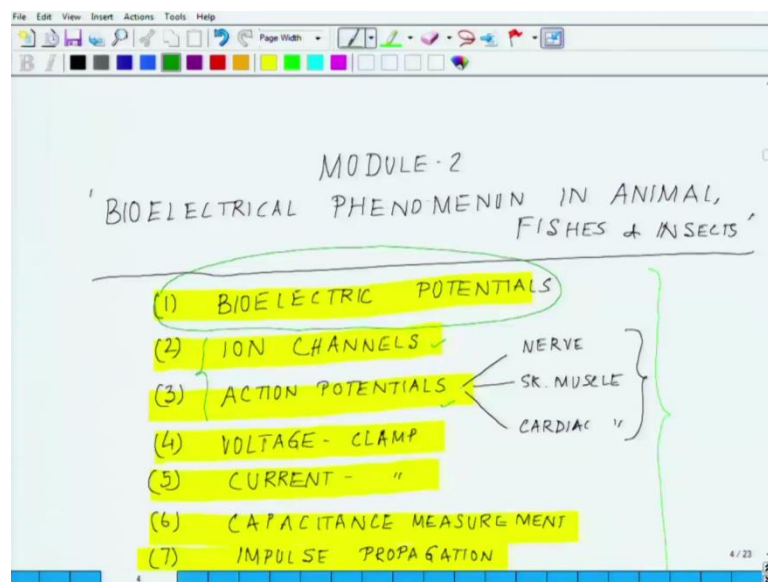 File Edit View Insert Actions Tools Help
Page Width
B I
MODULE-2
'BIOELECTRICAL PHENOMENON IN ANIMAL,
FISHES & INSECTS'
(1) BIOELECTRIC POTENTIALS
(2) ION CHANNELS
NERVE
(3) ACTION POTENTIALS
SK. MUSCLE
CARDIAC "
(4) VOLTAGE - CLAMP
(5) CURRENT - "
(6) CAPACITANCE MEASUREMENT
(7) IMPULSE PROPAGATION
4/23
4